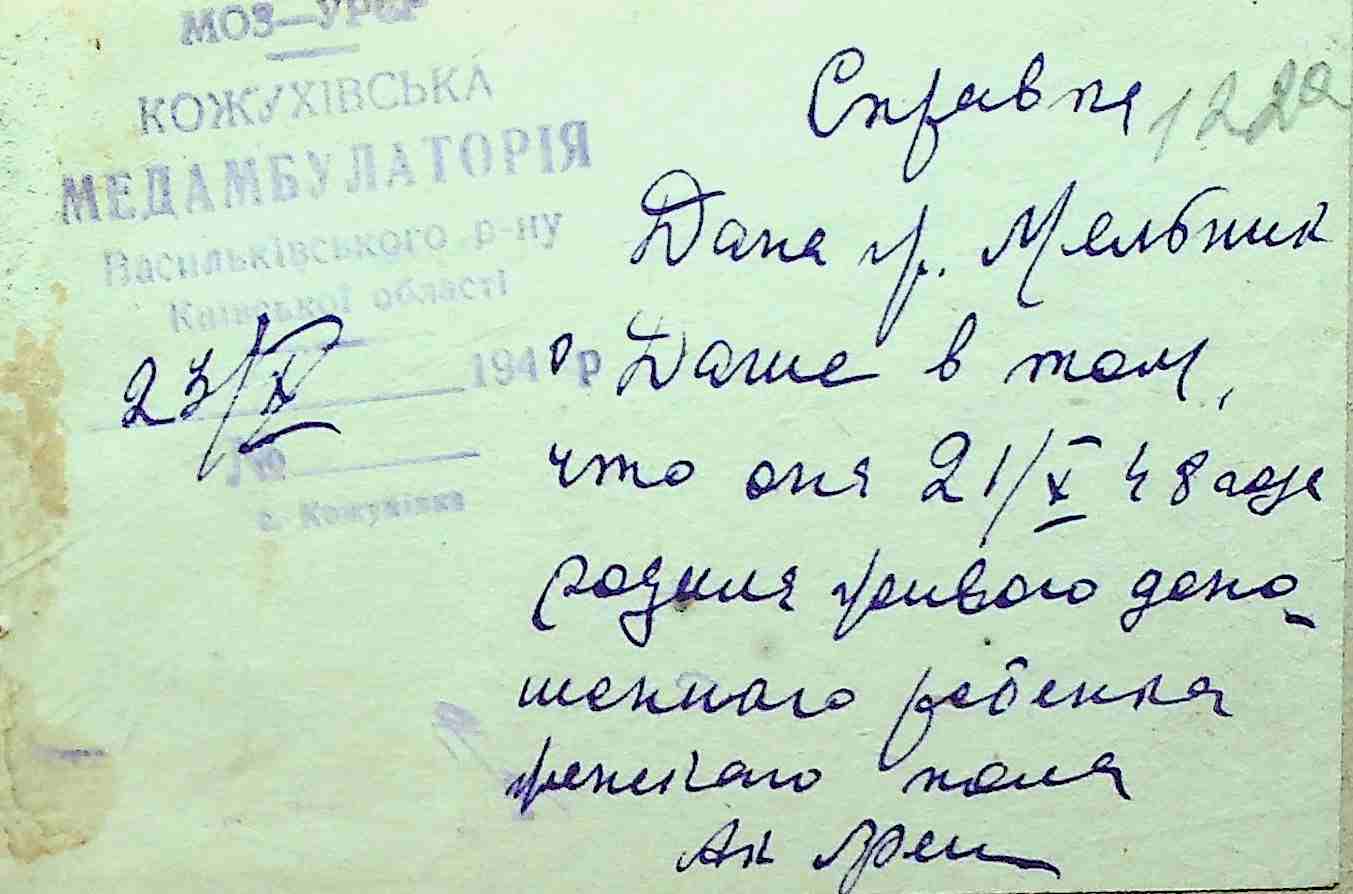 МОЗ—УРСР
КОЖУХІВСЬКА
МЕДАМБУЛАТОРІЯ
Васильківського р-ну
Київської області
23/X 194 р
№
с. Кожухівка
Справка
Дана гр. Мельник
Даше в том,
что она 21/X 48 года
родила живого доно-
шенного ребенка
женского пола
Ак